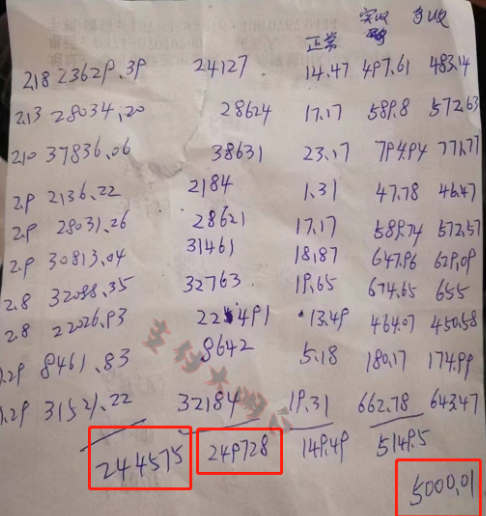 正常 实收 多收
2.18 23629.39 24127 14.47 497.61 483.14
2.13 28034.20 28624 17.17 589.8 572.63
2.10 37836.06 38631 23.17 794.94 771.77
2.9 2136.22 2184 1.31 47.78 46.47
2.9 28031.26 28621 17.17 589.74 572.57
2.9 30813.04 31461 18.87 647.96 629.09
2.8 32088.35 32763 19.65 674.65 655
2.8 22026.93 22491 13.49 464.07 450.58
1.29 8461.83 8642 5.18 180.17 174.99
1.29 31521.22 32184 19.31 662.78 643.47
244575 249728 149.49 5149.5
5000.01